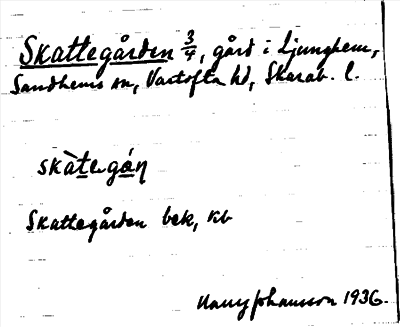 Skattegården 3/4, gård i Ljunghem,
Sandhems sn, Vartofta hd, Skarab. l.
skàtegán
Skattegården bek, kb
Harry Johansson 1936.